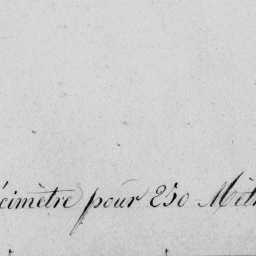 écimètre pour 250 Mèt